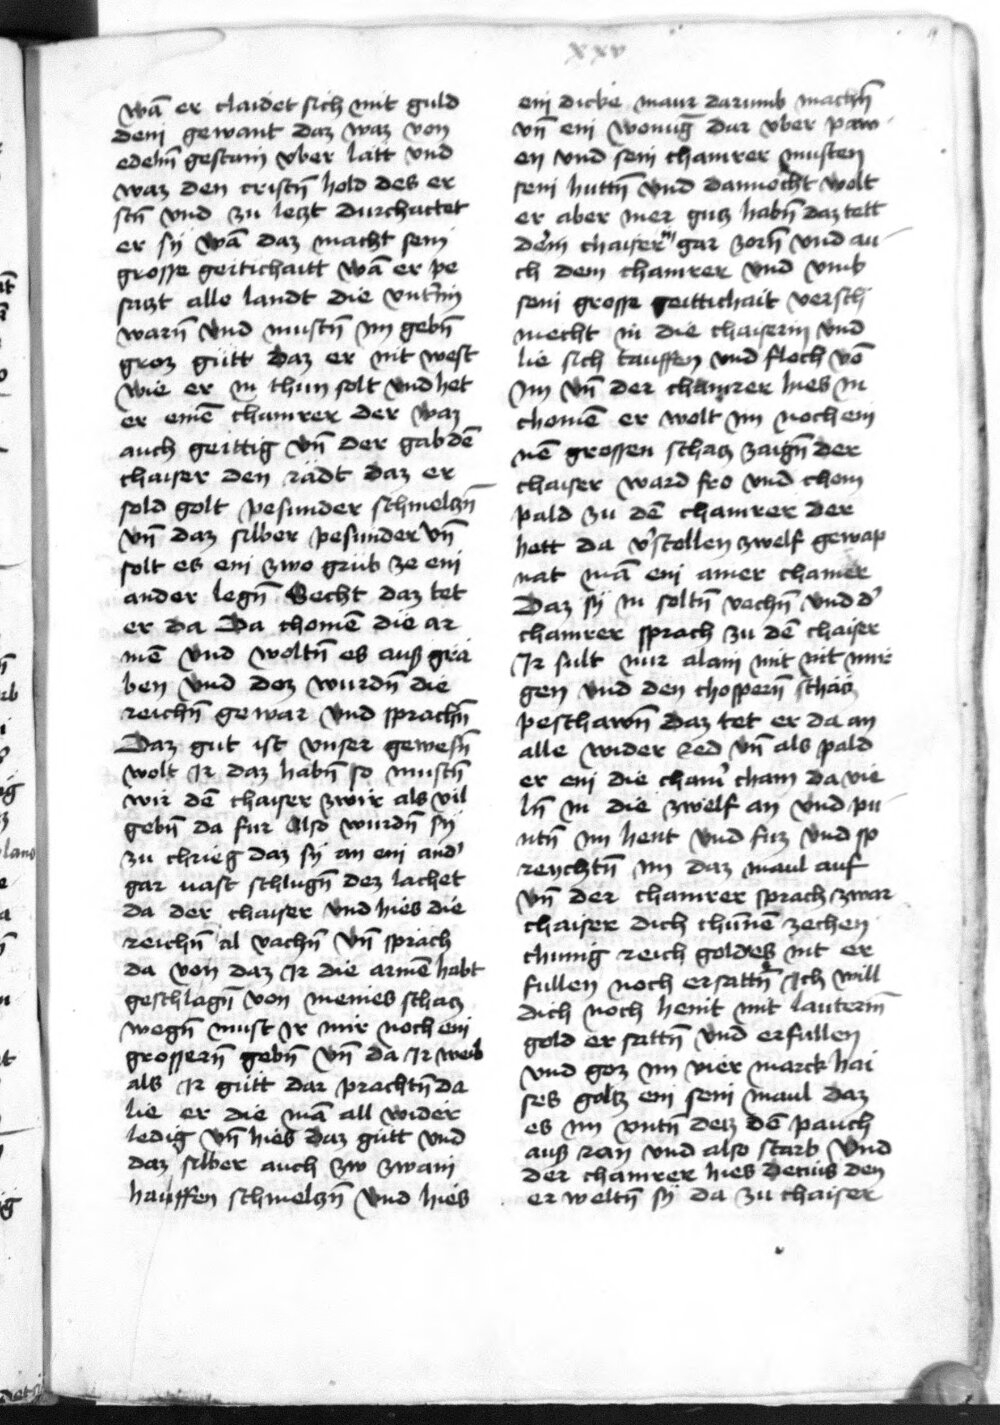 xxv
wā er claidet sich mit guld
dem gewant daz waz von
edelm̄ gestain vber latt vnd
waz den cristn̄ hold des er
stn̄ vnd zu leczt durchachtet
er sy wā daz macht sein
grosse geitichaitt wā er pe
saczt alle landt die vnt'im
warn̄ vnd mustn̄ im gebn̄
groz gutt daz er nit west
wie er im thun solt vnd het
er einē chamrer der waz
auch geittig vn̄ der gab dē
chaiser den rådt daz er
sold golt pesunder schmelczn̄
vn̄ daz silber pesunder vn̄
solt es ein zwo grüb ze ein
ander legn̄ Secht daz tet
er da Da chomē die ar
mē vnd woltn̄ es auß gra
ben vnd dez wurdn̄ die
reichn̄ gewar vnd sprachn̄
Daz gut ist vnser gewesn̄
wolt ir daz habn̄ so mustn̄
wir dē chaiser zwir als vil
gebn̄ da fur Also wurdn̄ sy
zu chrieg daz sy an ein and'
gar vast schlugn̄ dez lachet
da der chaiser vnd hies die
reichn̄ al vachn̄ vn̄ sprach
da von daz ir die armē habt
geschlagn̄ von meines schacz
wegn̄ must ir mir noch ein
grossern̄ gebn̄ vn̄ da ir weib
als ir gutt dar prachtn̄ da
lie er die mā all wider
ledig vn̄ hies daz gutt vnd
daz silber auch zw zwain
hauffen schmelczn̄ vnd hies
ein dicke maur darumb machn̄
vn̄ ein wonūg dar vber paw
en vnd sein chamrer musten
sein huttn̄ vnd dannocht wolt
er aber mer gutz habn̄ daz tett
dem chaiser in gar zorn̄ vnd au
ch dem chamrer vnd vmb
sein grosse geittichait versch
mecht in die chaiserin vnd
lie sich tauffen vnd floch vō
im vn̄ der chamrer hies in
chomē er wolt im noch ein
nē grossen schacz zaign̄ der
chaiser ward fro vnd chom
pald zu dē chamrer der
hett da v'stollen zwelf gewap
nat mā ein ainer chamer
Daz sy in soltn̄ vachn̄ vnd d'
chamrer sprach zu dē chaiser
Ir sult nur alain mit nit mir
gen vnd den chospern̄ schacz
peschawn̄ daz tet er da an
alle wider red vn̄ als pald
er ein die cham' cham da vie
ln̄ in die zwelf an vnd pu
ntn̄ im hent vnd fuz vnd sp
reycztn̄ im daz maul auf
vn̄ der chamrer sprach zwar
chaiser dich chūnē zechen
chunig reich goldes nit er
fullen noch ersattn̄ Ich will
dich noch heint mit lauterm̄
gold er sattn̄ vnd erfullen
vnd goz im vier marck hai
ses goltz ein sein maul daz
es im vntn̄ dez dē pauch
auß ran vnd also starb vnd
der chamrer hies Decius den
er weltn̄ sy da zu chaiser